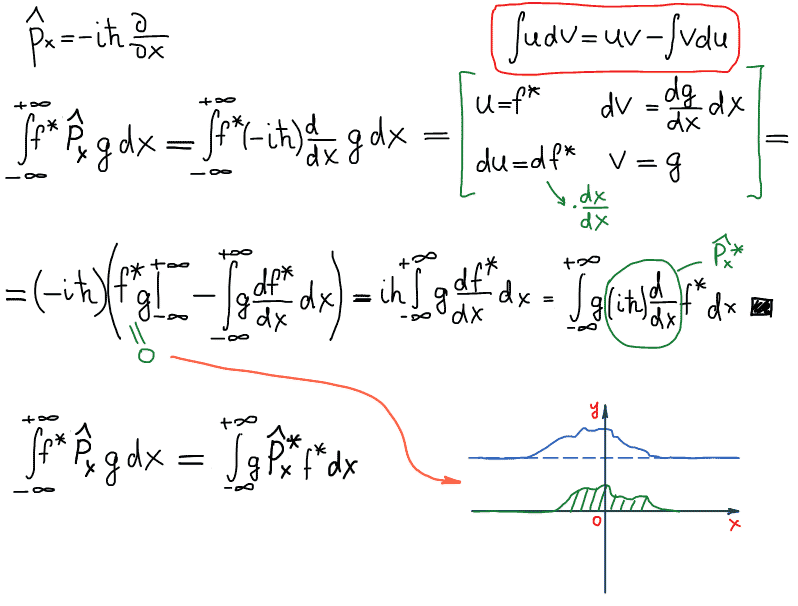 p̂ₓ = -iħ ∂/∂x
∫udv = uv - ∫vdu
∫_{-∞}^{+∞} f* P̂ₓ g dx = ∫_{-∞}^{+∞} f*(-iħ) d/dx g dx = [ u = f* dv = dg/dx dx
du = df* v = g ] =
· dx/dx
P̂ₓ*
= (-iħ)( f*g|_{-∞}^{+∞} - ∫_{-∞}^{+∞} g df*/dx dx ) = iħ ∫_{-∞}^{+∞} g df*/dx dx = ∫_{-∞}^{+∞} g (iħ) d/dx f* dx ■
= 0
∫_{-∞}^{+∞} f* P̂ₓ g dx = ∫_{-∞}^{+∞} g P̂ₓ* f* dx
y
0
x